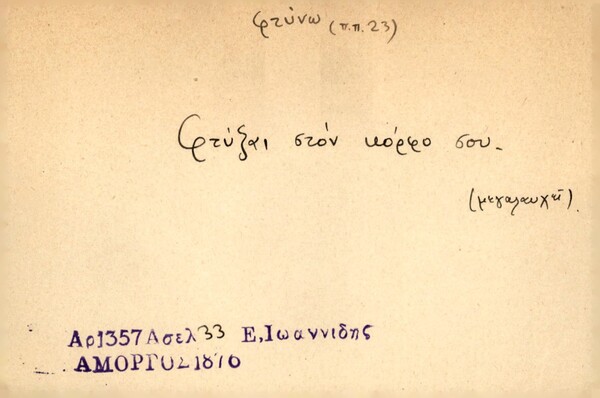 φτύνω (π.π. 23)
Φτύξαι στὸν κόρφο σου.
(μεγαλαυχεῖ).
Αρ1357Ασελ33 Ε,Ιωαννιδης
ΑΜΟΡΓΟΣ1876